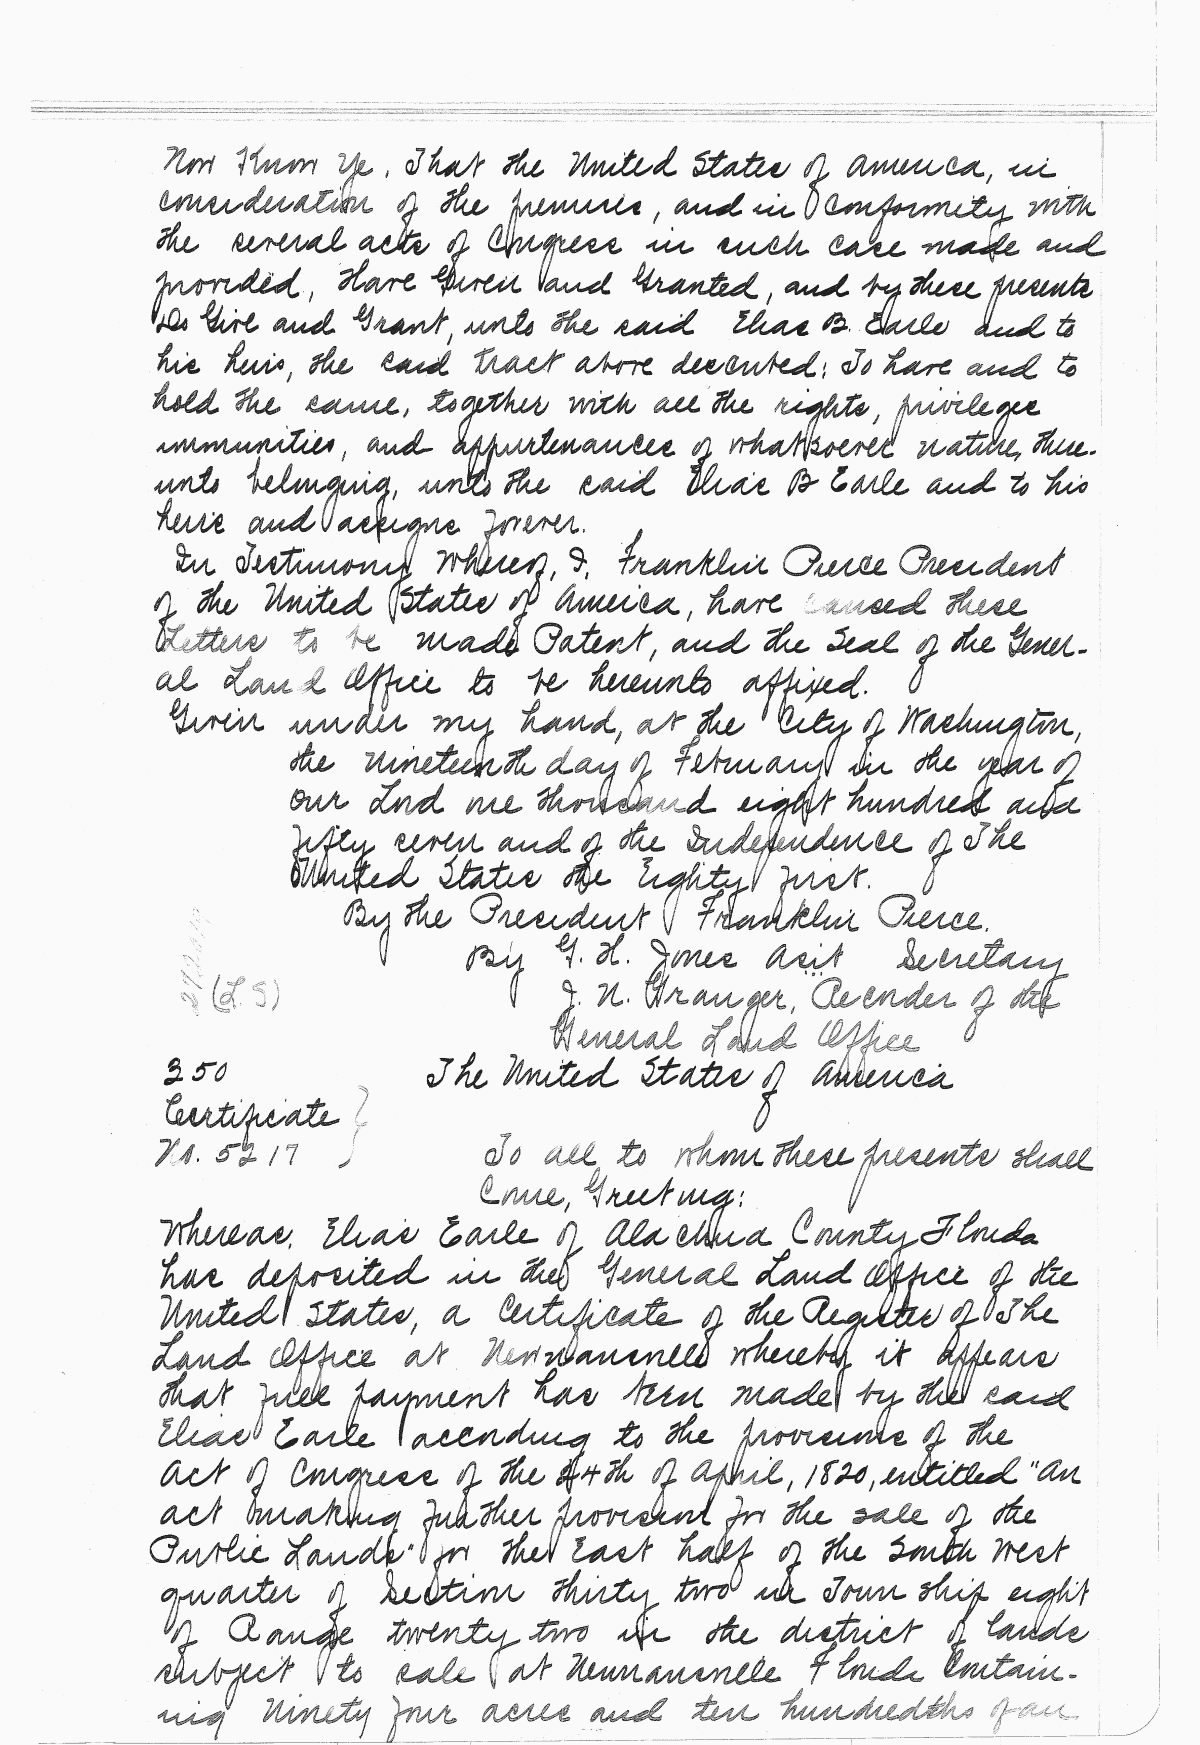 Now Know Ye, That the United States of America, in
consideration of the premises, and in Conformity with
the several acts of Congress in such case made and
provided, Have Given and Granted, and by these presents
Do Give and Grant, unto the said Elias B. Earle and to
his heirs, the said tract above described: To have and to
hold the same, together with all the rights, privileges
immunities, and appurtenances of whatsoever nature, there-
unto belonging, unto the said Elias B Earle and to his
heirs and assigns forever.
In Testimony Whereof, I, Franklin Pierce President
of the United States of America, have caused these
Letters to be made Patent, and the Seal of the Gener-
al Land Office to be hereunto affixed.
Given under my hand, at the City of Washington,
the Nineteenth day of February in the year of
our Lord one thousand eight hundred and
fifty seven and of the Independence of The
United States the Eighty first.
By the President Franklin Pierce.
By G. H. Jones Asst Secretary
(L. S)
J. N. Granger, Recorder of the
General Land Office
350
The United States of America
Certificate
No. 5217
To all to whom these presents shall
Come, Greeting:
Whereas, Elias Earle of Alachua County Florida
has deposited in the General Land Office of the
United States, a Certificate of the Register of The
Land Office at Newnansville whereby it appears
that full payment has been made by the said
Elias Earle according to the provisions of the
Act of Congress of the 24th of April, 1820, entitled "An
act making further provision for the sale of the
Public Lands" for the East half of the South West
quarter of Section thirty two in Town ship eight
of Range twenty two in the district of lands
subject to sale at Newnansville Florida Contain-
ing Ninety four acres and ten hundredths of an